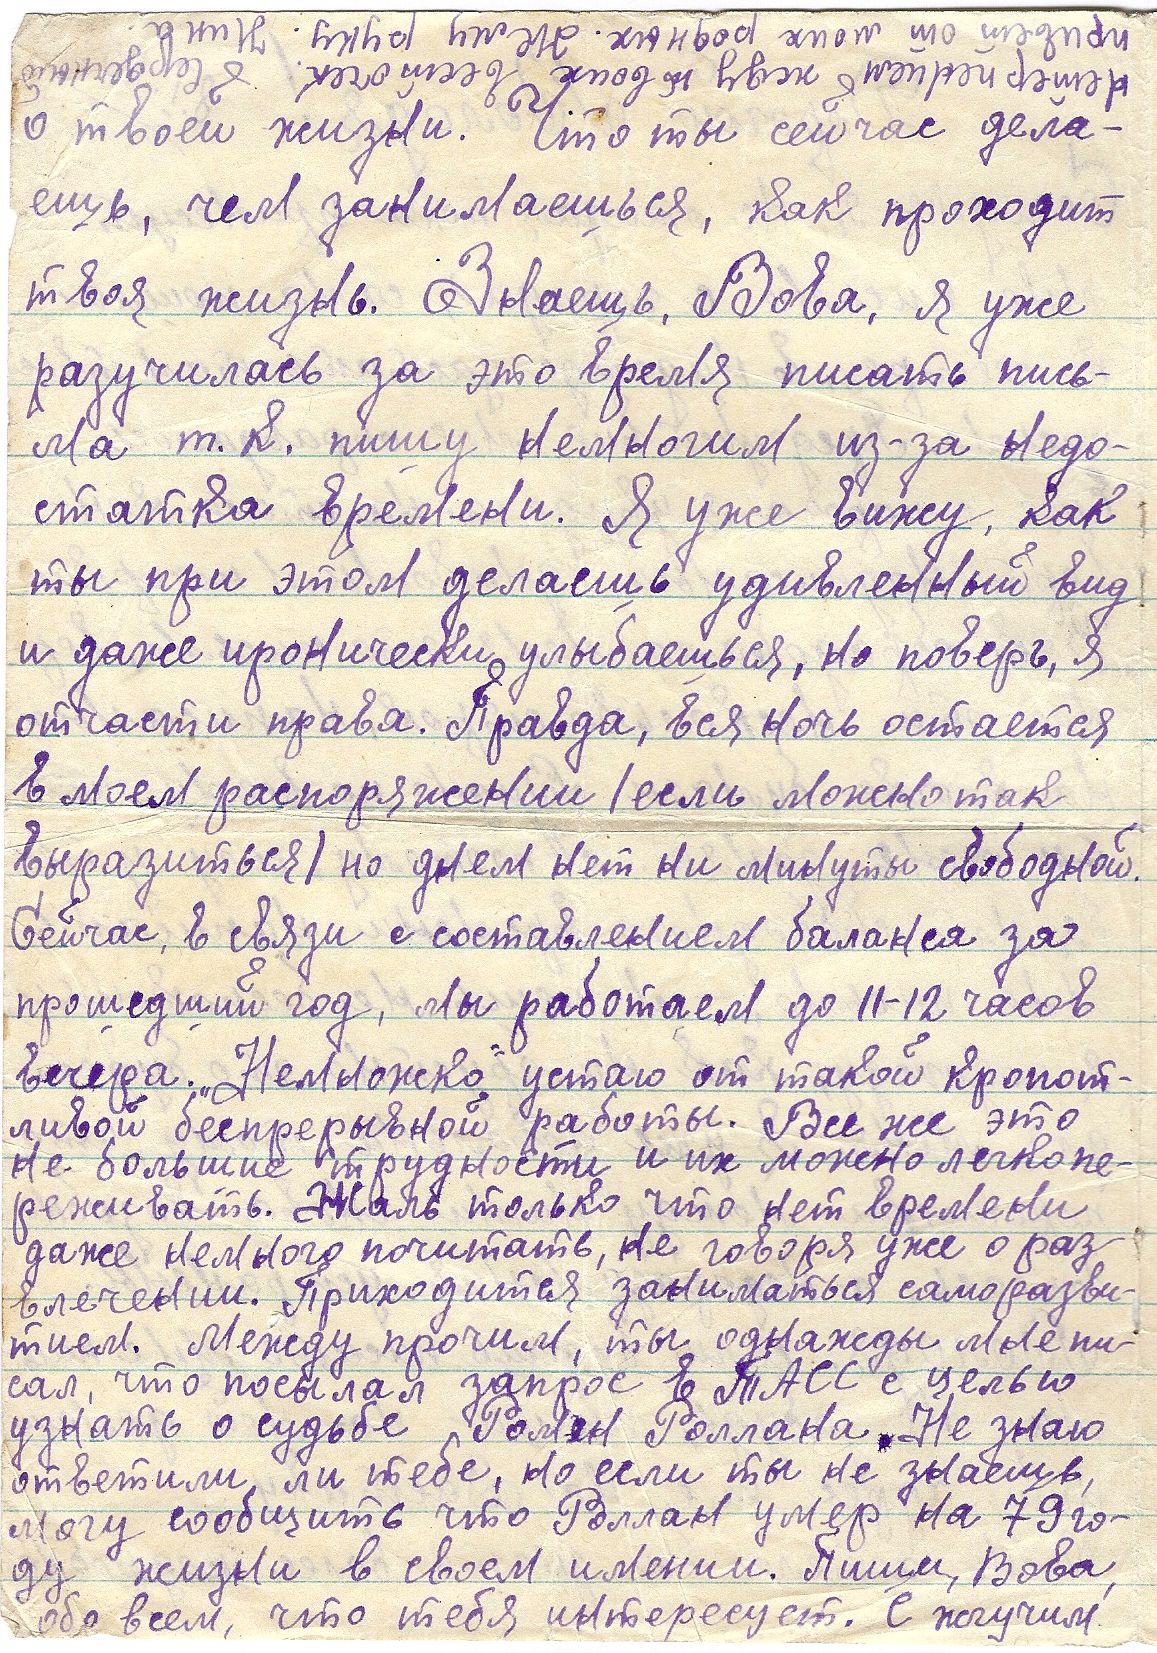 о твоей жизни. Что ты сейчас дела-
ешь, чем занимаешься, как проходит
твоя жизнь. Знаешь, Вова, я уже
разучилась за это время писать пись-
ма т.к. пишу немногим из-за недо-
статка времени. Я уже вижу, как
ты при этом делаешь удивленный вид
и даже иронически улыбаешься, но поверь, я
отчасти права. Правда, вся ночь остается
в моем распоряжении /если можно так
выразиться/ но днем нет ни минуты свободной.
Сейчас, в связи с составлением баланса за
прошедший год, мы работаем до 11-12 часов
вечера. „Немножко" устаю от такой кропот-
ливой беспрерывной работы. Все же это
не большие трудности и их можно легко пе-
реживать. Жаль только что нет времени
даже немного почитать, не говоря уже о раз-
влечении. Приходится заниматься саморазви-
тием. Между прочим, ты однажды мне пи-
сал, что посылал запрос в ТАСС с целью
узнать о судьбе Ромен Роллана. Не знаю
ответили ли тебе, но если ты не знаешь,
могу сообщить что Роллан умер на 79 го-
ду жизни в своем имении. Пиши, Вова,
обо всем, что тебя интересует. С жгучим
нетерпением жду твоих весточек. Сердечный
привет от моих родных. Жму руку. Нина.